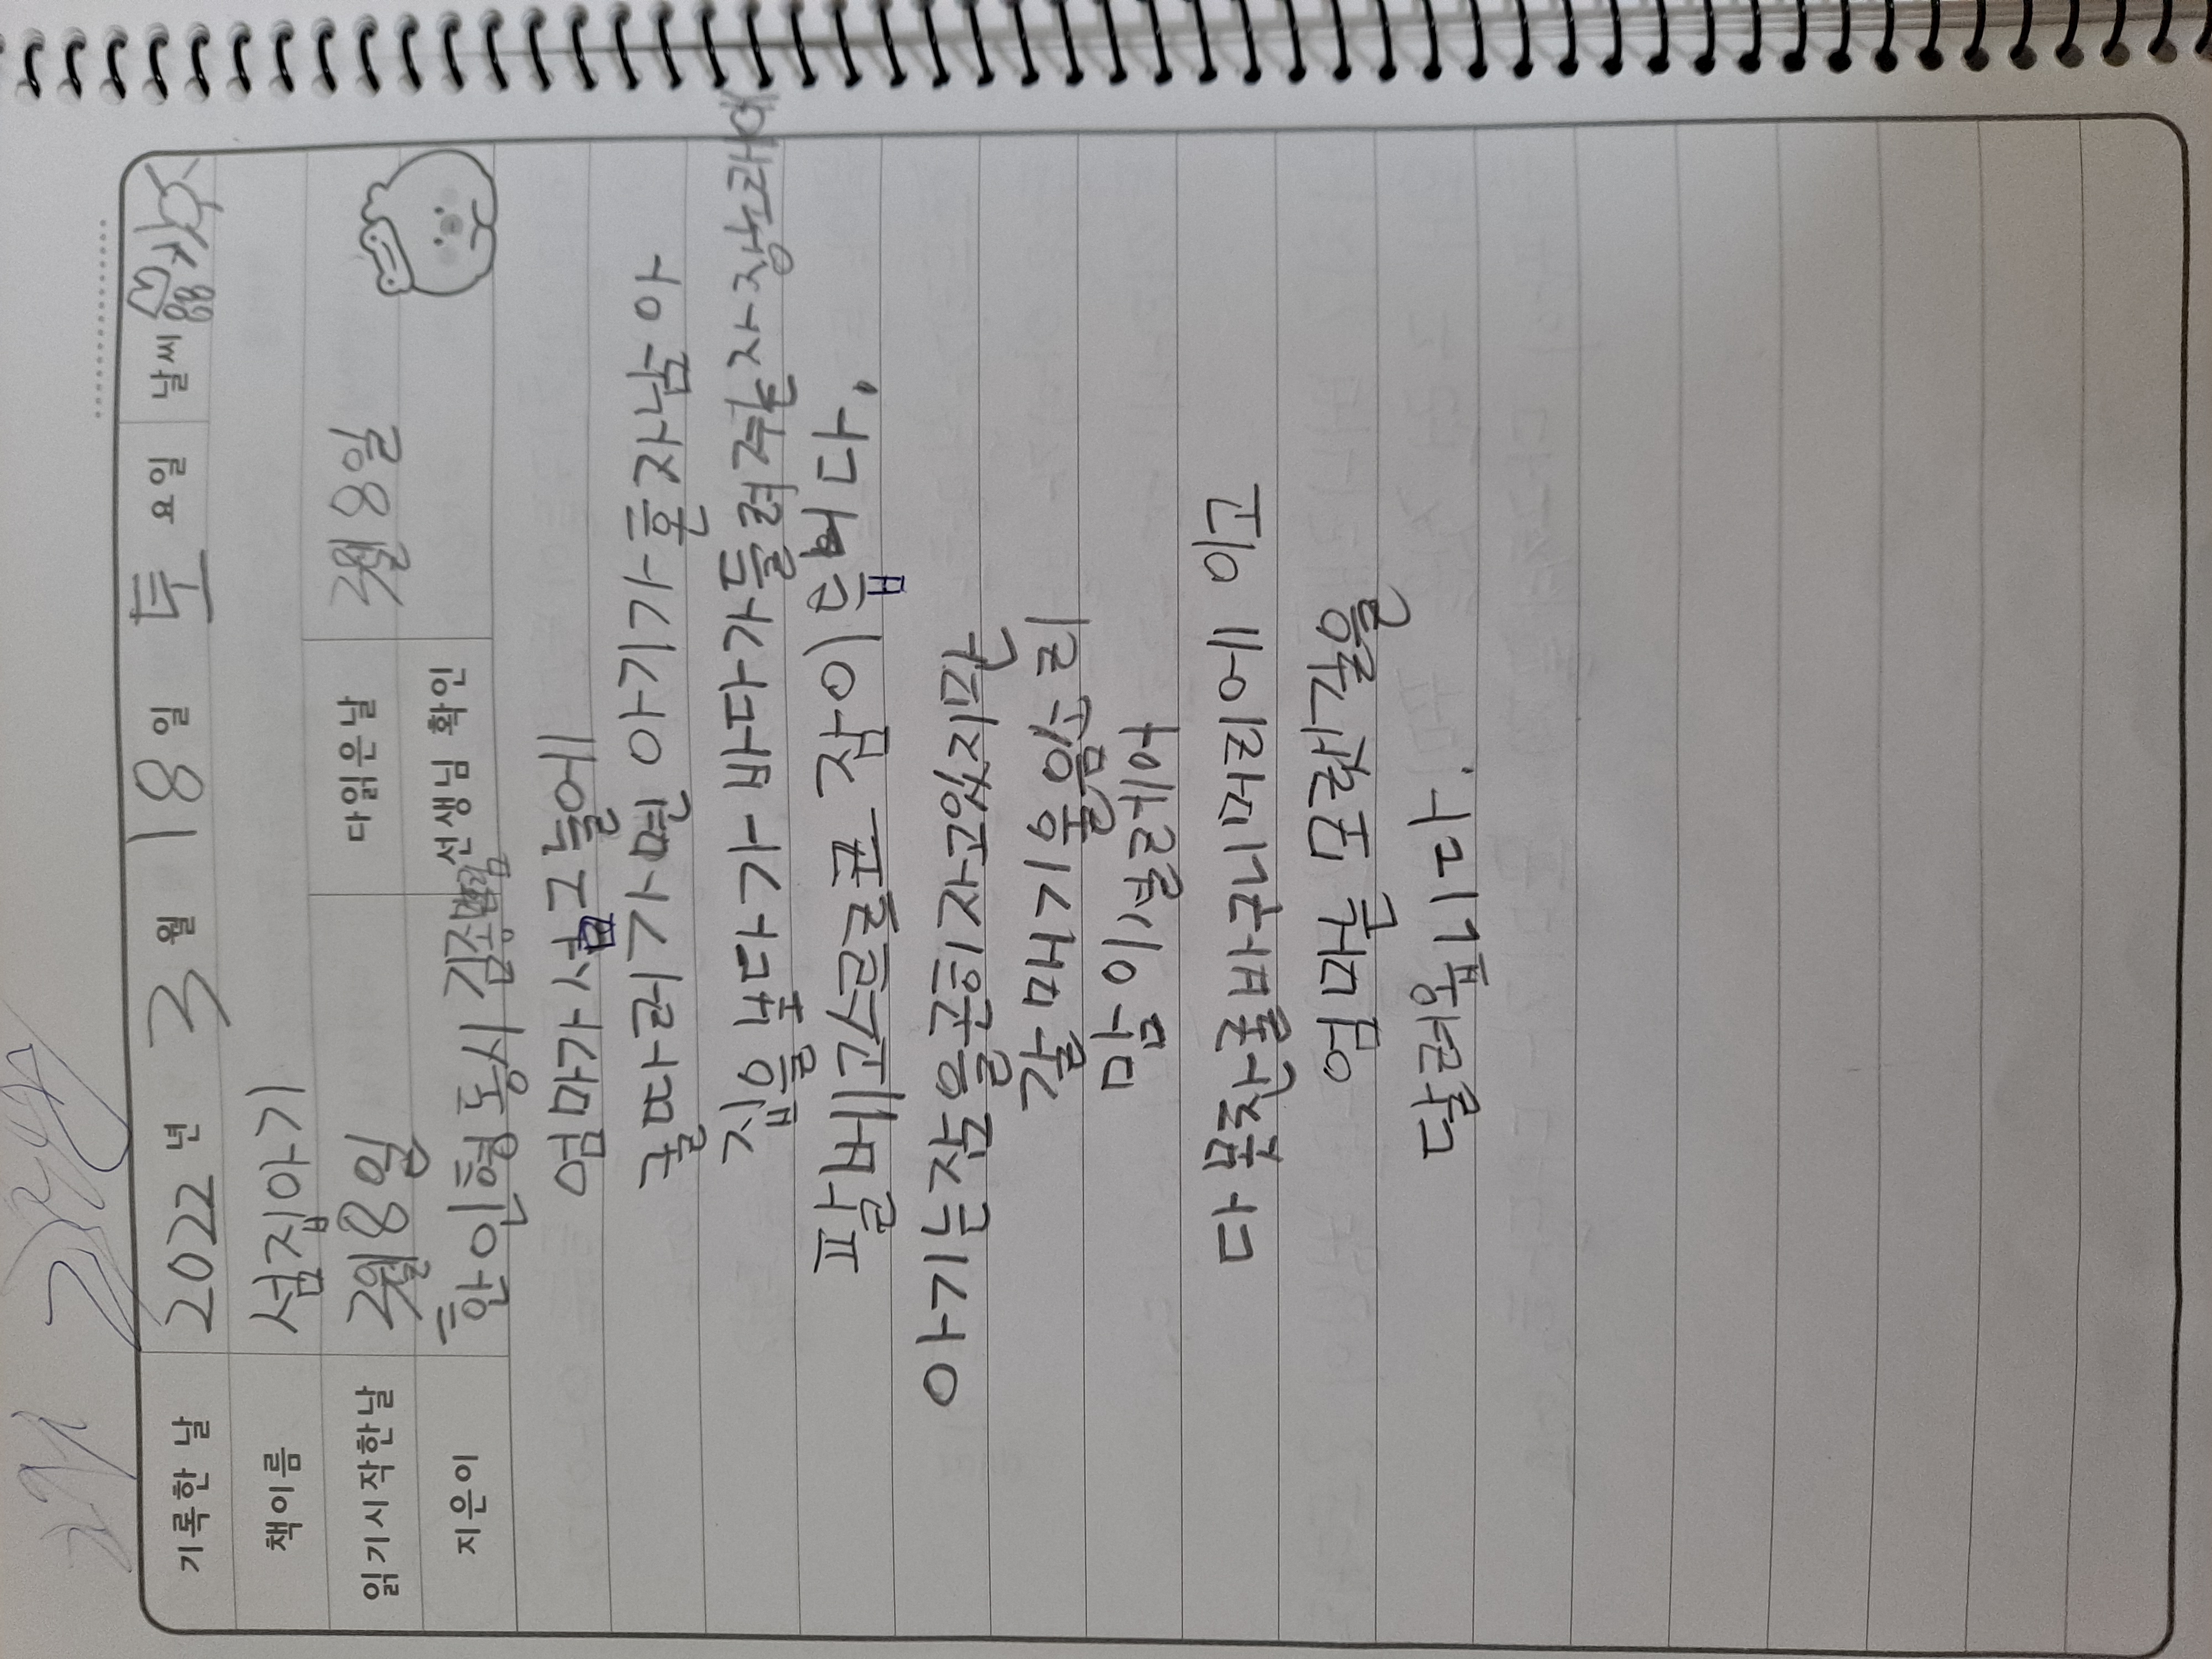 기록한 날 2022 년 3 월 18 일 토 요일 날씨
책이름 섬집아기
읽기시작한날 3월8일 다읽은날 3월8일
지은이 한인형동시 김종 선생님 확인
엄마가 섬그늘에
굴따러가면 아기가혼자남아
집을보다가 바다가들려주는자장노래에
팔베고스르르르 잠이듭니다.
아기는잠을곤히자고있지만
갈매기울음소리
맘이설레어
다못찬굴바구니머리에 이고
엄마는 모랫길을
달려옵니다.